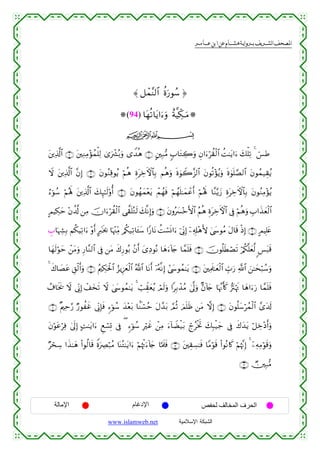 المصحف الشريف برواية هشام عن ابن عامر
﴿ سُورَةُ ٱلنَّمْلِ ﴾
* مَكِّيَّةٌ وَءَايَاتُهَا (94) *
بِسْمِ ٱللَّهِ ٱلرَّحْمَٰنِ ٱلرَّحِيمِ
طسٓ ۚ تِلْكَ ءَايَٰتُ ٱلْقُرْءَانِ وَكِتَابٍ مُّبِينٍ هُدًى وَبُشْرَىٰ لِلْمُؤْمِنِينَ ٱلَّذِينَ
يُقِيمُونَ ٱلصَّلَوٰةَ وَيُؤْتُونَ ٱلزَّكَوٰةَ وَهُم بِٱلْءَاخِرَةِ هُمْ يُوقِنُونَ إِنَّ ٱلَّذِينَ لَا
يُؤْمِنُونَ بِٱلْءَاخِرَةِ زَيَّنَّا لَهُمْ أَعْمَٰلَهُمْ فَهُمْ يَعْمَهُونَ أُو۟لَٰٓئِكَ ٱلَّذِينَ لَهُمْ سُوٓءُ
ٱلْعَذَابِ وَهُمْ فِى ٱلْءَاخِرَةِ هُمُ ٱلْأَخْسَرُونَ وَإِنَّكَ لَتُلَقَّى ٱلْقُرْءَانَ مِن لَّدُنْ حَكِيمٍ
عَلِيمٍ إِذْ قَالَ مُوسَىٰ لِأَهْلِهِۦٓ إِنِّىٓ ءَانَسْتُ نَارًا سَـَٔاتِيكُم مِّنْهَا بِخَبَرٍ أَوْ ءَاتِيكُم بِشِهَابِ
قَبَسٍ لَّعَلَّكُمْ تَصْطَلُونَ فَلَمَّا جَآءَهَا نُودِىَ أَنۢ بُورِكَ مَن فِى ٱلنَّارِ وَمَنْ حَوْلَهَا
وَسُبْحَٰنَ ٱللَّهِ رَبِّ ٱلْعَٰلَمِينَ يَٰمُوسَىٰٓ إِنَّهُۥٓ أَنَا ٱللَّهُ ٱلْعَزِيزُ ٱلْحَكِيمُ وَأَلْقِ عَصَاكَ ۚ
فَلَمَّا رَءَاهَا تَهْتَزُّ كَأَنَّهَا جَآنٌّ وَلَّىٰ مُدْبِرًا وَلَمْ يُعَقِّبْ ۚ يَٰمُوسَىٰ لَا تَخَفْ إِنِّى لَا يَخَافُ
لَدَىَّ ٱلْمُرْسَلُونَ إِلَّا مَن ظَلَمَ ثُمَّ بَدَّلَ حُسْنًۢا بَعْدَ سُوٓءٍ فَإِنِّى غَفُورٌ رَّحِيمٌ
وَأَدْخِلْ يَدَكَ فِى جَيْبِكَ تَخْرُجْ بَيْضَآءَ مِنْ غَيْرِ سُوٓءٍ ۖ فِى تِسْعِ ءَايَٰتٍ إِلَىٰ فِرْعَوْنَ
وَقَوْمِهِۦٓ ۚ إِنَّهُمْ كَانُوا۟ قَوْمًا فَٰسِقِينَ فَلَمَّا جَآءَتْهُمْ ءَايَٰتُنَا مُبْصِرَةً قَالُوا۟ هَٰذَا سِحْرٌ
مُّبِينٌ
الحرف المخالف لحفص الإدغام الإمالة
الشبكة الإسلامية www.islamweb.net